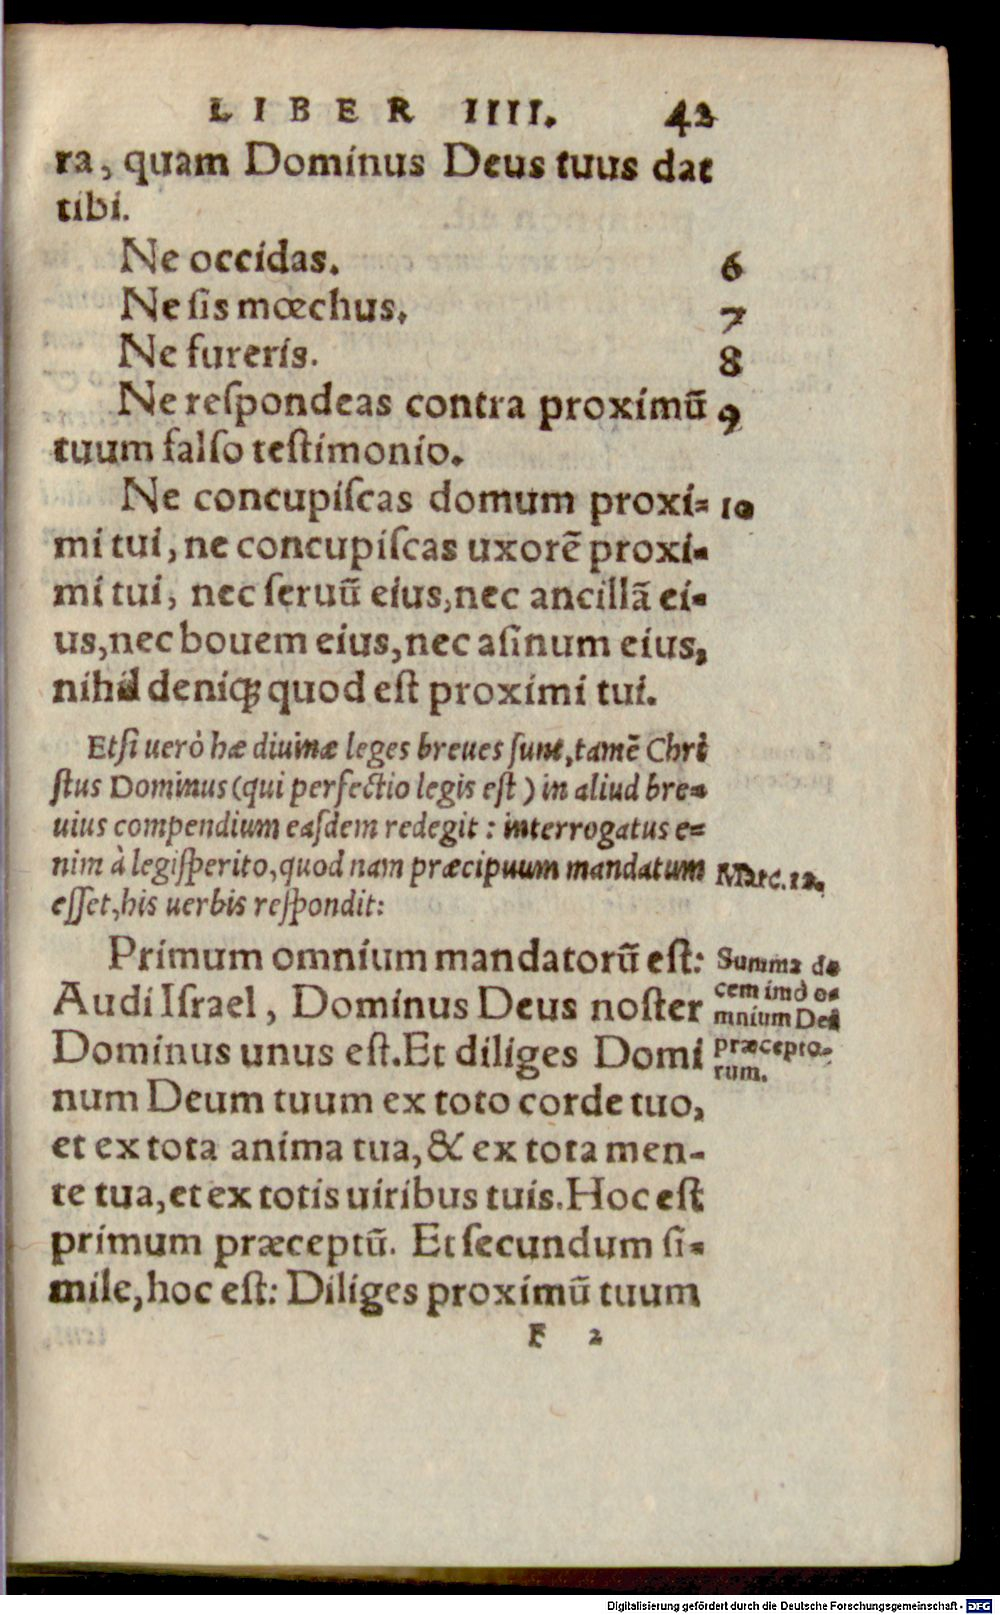 LIBER IIII. 42
ra, quam Dominus Deus tuus dat
tibi.
Ne occidas. 6
Ne ſis mœchus. 7
Ne fureris. 8
Ne reſpondeas contra proximũ 9
tuum falſo teſtimonio.
Ne concupiſcas domum proxi- 10
mi tui, ne concupiſcas uxorẽ proxi-
mi tui, nec ſeruũ eius, nec ancillã ei-
us, nec bouem eius, nec aſinum eius,
nihil deniq; quod eſt proximi tui.
Etſi uerò hæ diuinæ leges breues ſunt, tamẽ Chri
ſtus Dominus (qui perfectio legis eſt) in aliud bre-
uius compendium eaſdem redegit: interrogatus e-
nim à legiſperito, quod nam præcipuum mandatum
eſſet, his uerbis reſpondit:
Marc.12.
Primum omnium mandatorũ eſt:
Audi Iſrael, Dominus Deus noſter
Dominus unus eſt. Et diliges Domi
num Deum tuum ex toto corde tuo,
et ex tota anima tua, & ex tota men-
te tua, et ex totis uiribus tuis. Hoc eſt
primum præceptũ. Et ſecundum ſi-
mile, hoc eſt: Diliges proximũ tuum
Summa de
cem imò o-
mnium Dei
præcepto-
rum.
F 2
Digitalisierung gefördert durch die Deutsche Forschungsgemeinschaft - DFG